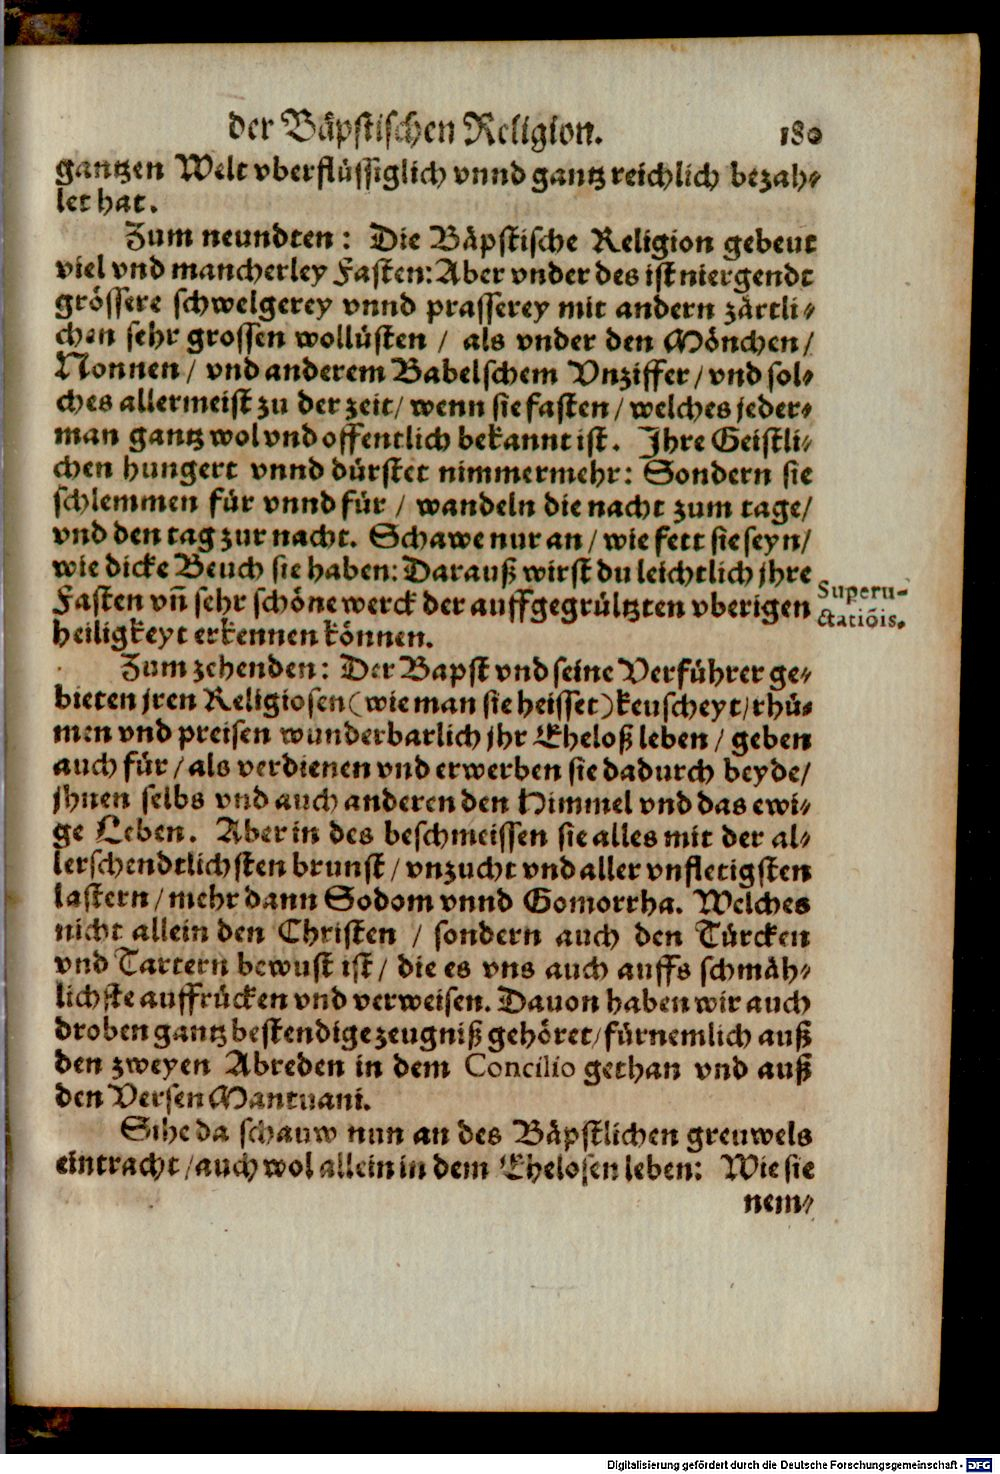 der Bäpstischen Religion. 180
gantzen Welt vberflüssiglich vnnd gantz reichlich bezah-
let hat.
Zum neundten: Die Bäpstische Religion gebeut
viel vnd mancherley Fasten: Aber vnder des ist niergendt
grössere schwelgerey vnnd prasserey mit andern zärtli-
chen sehr grossen wollüsten / als vnder den Mönchen/
Nonnen/ vnd anderem Babelschem Vnziffer/ vnd sol-
ches allermeist zu der zeit/ wenn sie fasten/ welches jeder-
man gantz wol vnd offentlich bekannt ist. Ihre Geistli-
chen hungert vnnd dürstet nimmermehr: Sondern sie
schlemmen für vnnd für / wandeln die nacht zum tage/
vnd den tag zur nacht. Schawe nur an/ wie fett sie seyn/
wie dicke Beuch sie haben: Darauß wirst du leichtlich jhre
Fasten vñ sehr schöne werck der auffgegrültzten vberigen
heiligkeyt erkennen können.
Superu-
ctatiõis.
Zum zehenden: Der Bapst vnd seine Verführer ge-
bieten jren Religiosen (wie man sie heisset) keuscheyt/ rhü-
men vnd preisen wunderbarlich jhr Eheloß leben/ geben
auch für/ als verdienen vnd erwerben sie dadurch beyde/
jhnen selbs vnd auch anderen den Himmel vnd das ewi-
ge Leben. Aber in des beschmeissen sie alles mit der al-
lerschendtlichsten brunst/ vnzucht vnd aller vnfletigsten
lastern/ mehr dann Sodom vnnd Gomorrha. Welches
nicht allein den Christen / sondern auch den Türcken
vnd Tartern bewust ist/ die es vns auch auffs schmäh-
lichste auffrücken vnd verweisen. Dauon haben wir auch
droben gantz bestendige zeugniß gehöret/ fürnemlich auß
den zweyen Abreden in dem Concilio gethan vnd auß
den Versen Mantuani.
Sihe da schauw nun an des Bäpstlichen greuwels
eintracht/ auch wol allein in dem Ehelosen leben: Wie sie
nem-
Digitalisierung gefördert durch die Deutsche Forschungsgemeinschaft - DFG